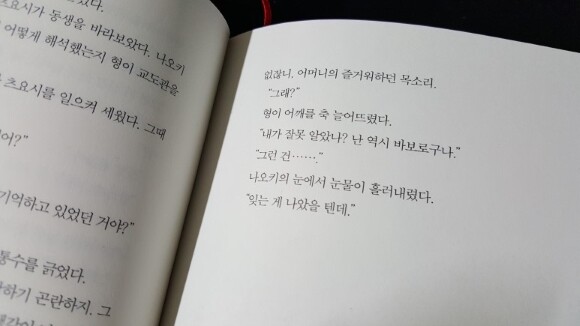 츠요시가 동생을 바라보았다. 나오키
어떻게 해석했는지 형이 교도관을
츠요시를 일으켜 세웠다. 그때
어?”
기억하고 있었던 거야?”
통수를 긁었다.
하기 곤란하지. 그
없잖니, 어머니의 즐거워하던 목소리.
“그래?”
형이 어깨를 축 늘어뜨렸다.
“내가 잘못 알았나? 난 역시 바보로구나.”
“그런 건……”
나오키의 눈에서 눈물이 흘러내렸다.
“잊는 게 나았을 텐데.”